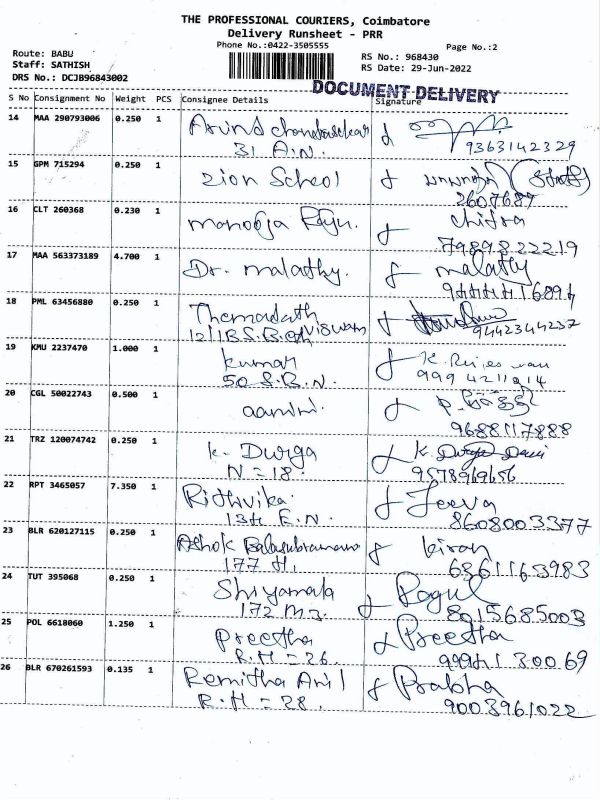 THE PROFESSIONAL COURIERS, Coimbatore
Delivery Runsheet - PRR
Phone No.:0422-3505555
Page No.:2
Route: BABU
Staff: SATHISH
DRS No.: DCJB96843002
RS No.: 968430
RS Date: 29-Jun-2022
DOCUMENT DELIVERY
S No Consignment No Weight PCS Consignee Details Signature
14 MAA 290793006 0.250 1 Arvind Chandrasekar
31 A.N. 9363142329
15 GPM 715294 0.250 1 Zion School
2607687
16 CLT 260368 0.230 1 manooja Raju. Chitra
7989822219
17 MAA 563373189 4.700 1 Dr. malathy. malathy
18 PML 63456880 0.250 1
9442344237
19 KMU 2237470 1.000 1 kumar
50 S.B.N.
20 CGL 50022743 0.500 1
9688117888
21 TRZ 120074742 0.250 1 K. Durga K. Durga Devi
N = 18. 9578969656
22 RPT 3465057 7.350 1 Rithvika Jeeva
13th E.N. 8608003377
23 BLR 620127115 0.250 1 Ashok Balasubramann kiran
177 H. 6361163983
24 TUT 395068 0.250 1 Shyamala
172 8015685003
25 POL 6618060 1.250 1 Preetha Preetha
R.H = 26.
26 BLR 670261593 0.135 1 Remitha Anil Prabha
R.H = 28. 9003961022